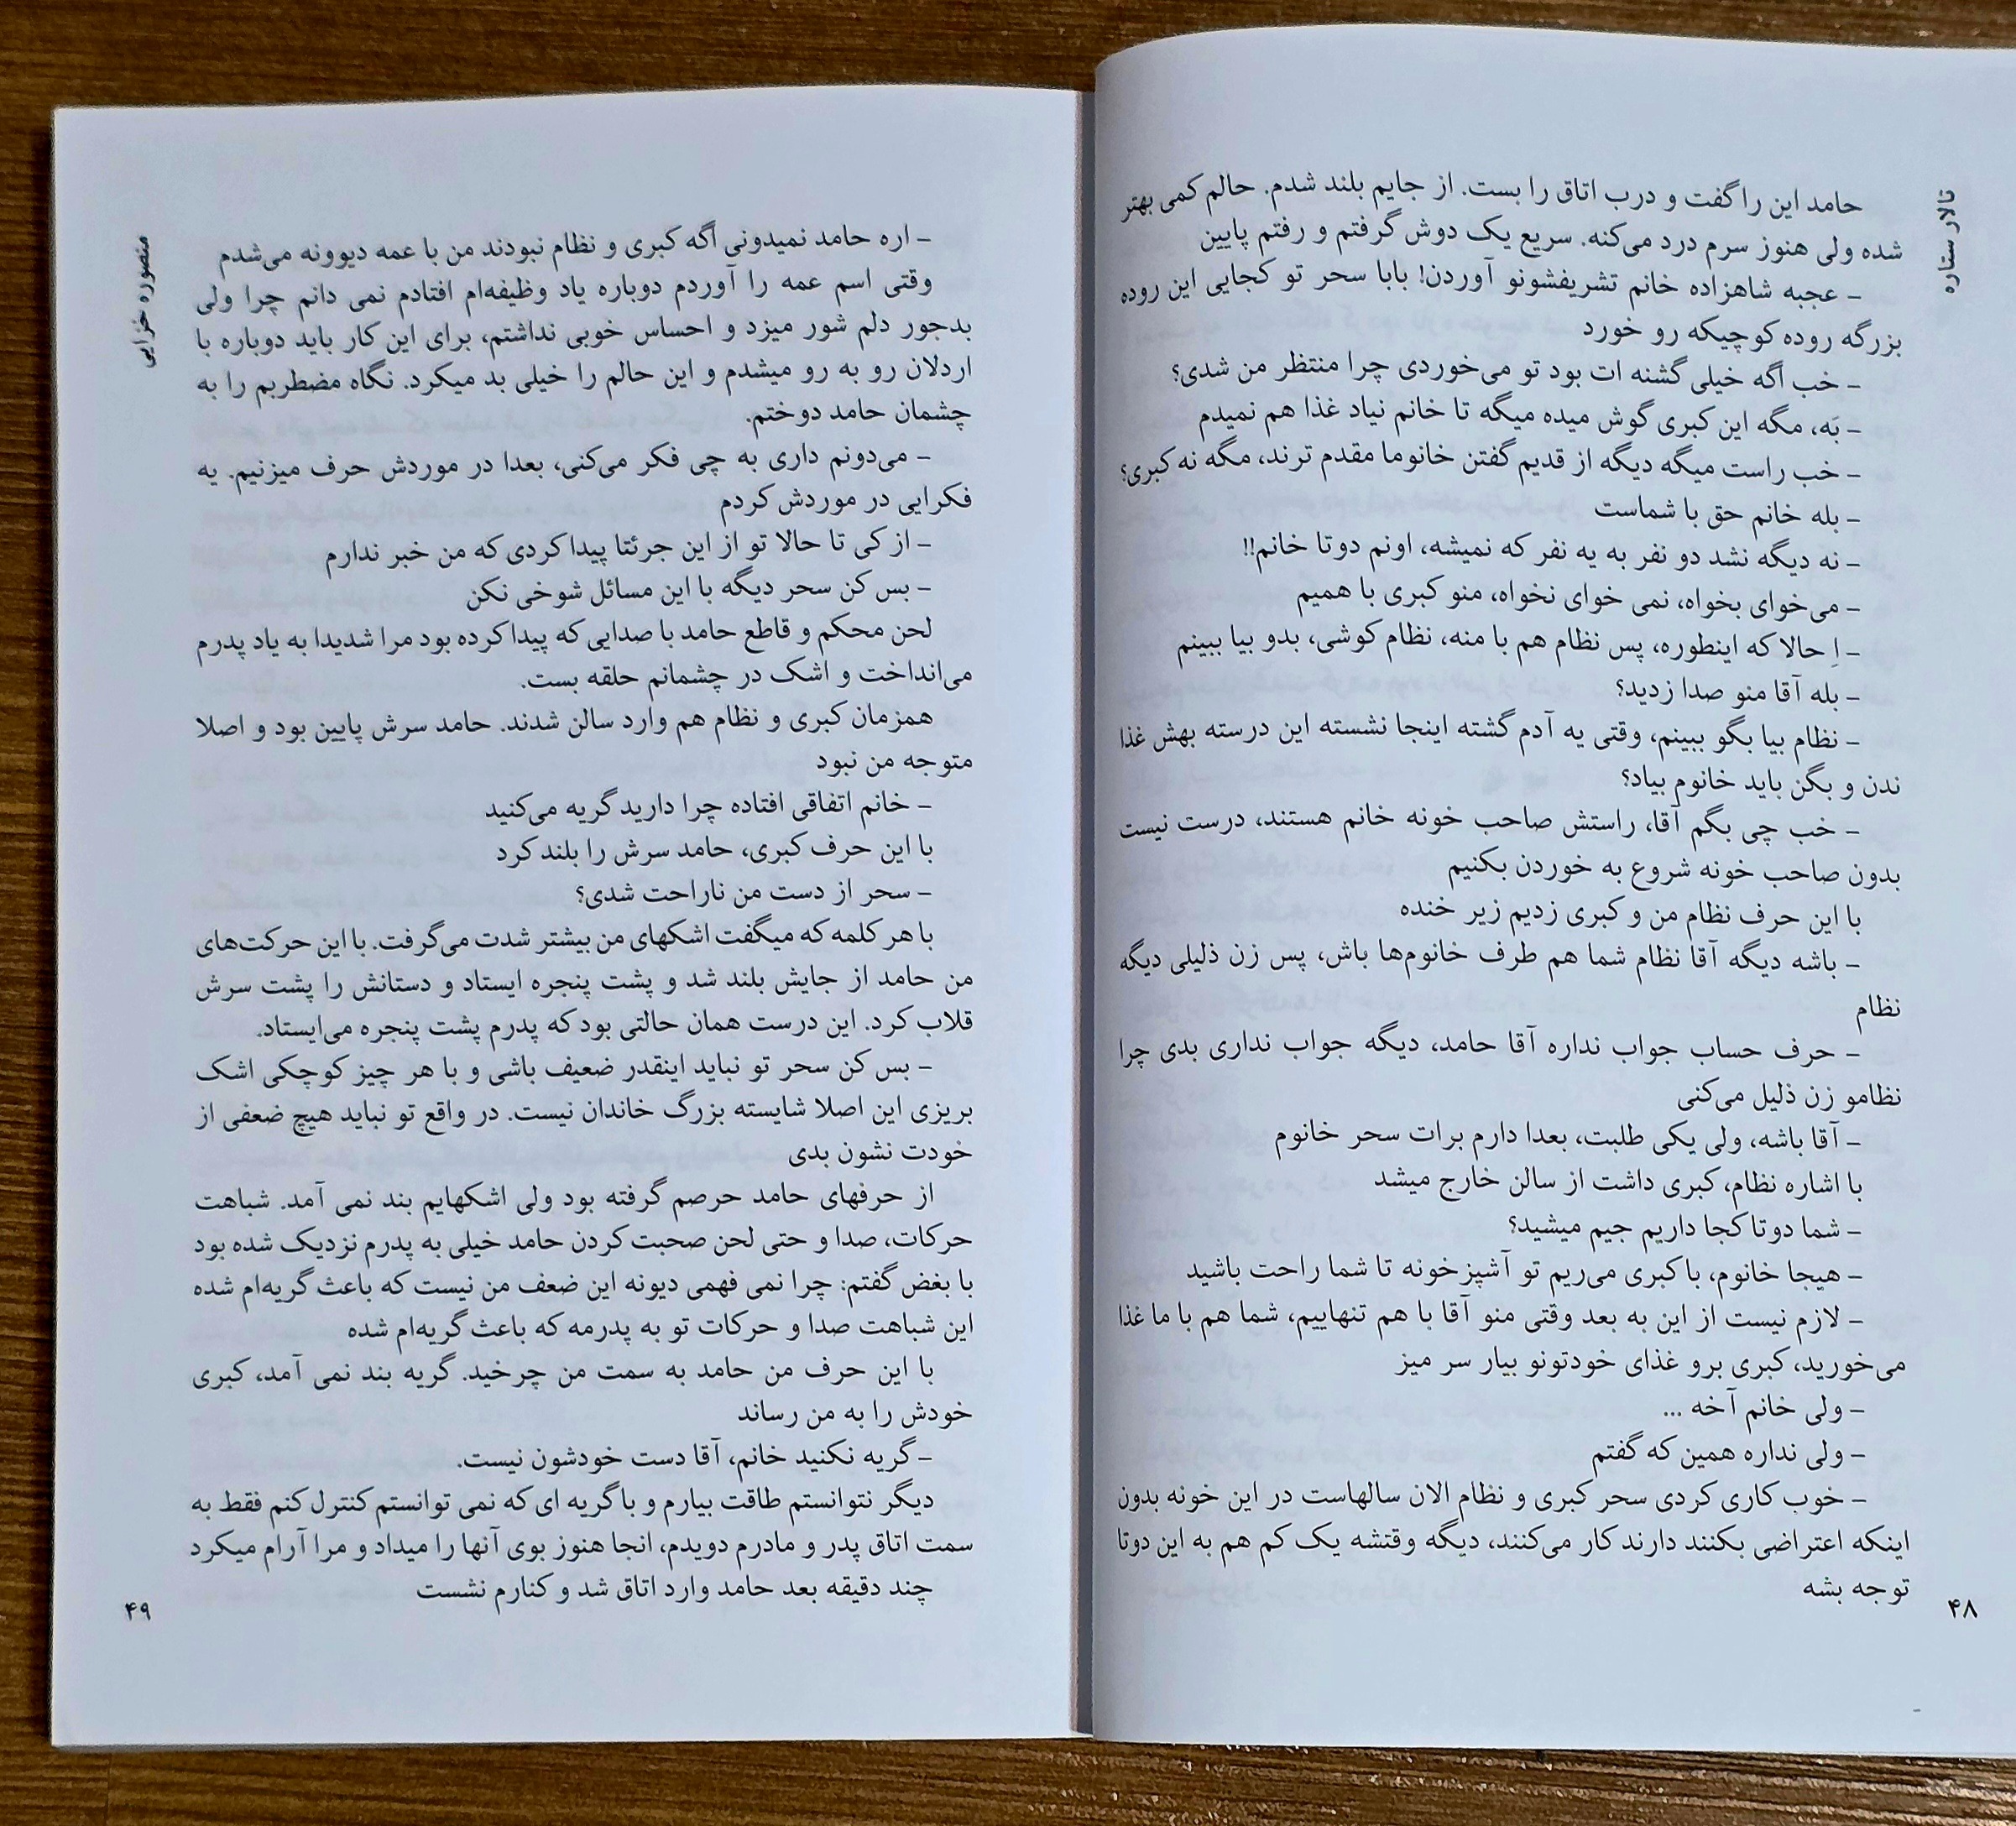 تالار ستاره
حامد این را گفت و درب اتاق را بست. از جایم بلند شدم. حالم کمی بهتر
شده ولی هنوز سرم درد می‌کنه. سریع یک دوش گرفتم و رفتم پایین
- عجبه شاهزاده خانم تشریفشونو آوردن! بابا سحر تو کجایی این روده
بزرگه روده کوچیکه رو خورد
- خب اگه خیلی گشنه ات بود تو می‌خوردی چرا منتظر من شدی؟
- بَه، مگه این کبری گوش میده میگه تا خانم نیاد غذا هم نمیدم
- خب راست میگه دیگه از قدیم گفتن خانوما مقدم ترند، مگه نه کبری؟
- بله خانم حق با شماست
- نه دیگه نشد دو نفر به یه نفر که نمیشه، اونم دوتا خانم!!
- می‌خوای بخواه، نمی خوای نخواه، منو کبری با همیم
- اِ حالا که اینطوره، پس نظام هم با منه، نظام کوشی، بدو بیا ببینم
- بله آقا منو صدا زدید؟
- نظام بیا بگو ببینم، وقتی یه آدم گشته اینجا نشسته این درسته بهش غذا
ندن و بگن باید خانوم بیاد؟
- خب چی بگم آقا، راستش صاحب خونه خانم هستند، درست نیست
بدون صاحب خونه شروع به خوردن بکنیم
با این حرف نظام من و کبری زدیم زیر خنده
- باشه دیگه آقا نظام شما هم طرف خانوم‌ها باش، پس زن ذلیلی دیگه
نظام
- حرف حساب جواب نداره آقا حامد، دیگه جواب نداری بدی چرا
نظامو زن ذلیل می‌کنی
- آقا باشه، ولی یکی طلبت، بعدا دارم برات سحر خانوم
با اشاره نظام، کبری داشت از سالن خارج میشد
- شما دوتا کجا داریم جیم میشید؟
- هیجا خانوم، با کبری می‌ریم تو آشپزخونه تا شما راحت باشید
- لازم نیست از این به بعد وقتی منو آقا با هم تنهاییم، شما هم با ما غذا
می‌خورید، کبری برو غذای خودتونو بیار سر میز
- ولی خانم آخه ...
- ولی نداره همین که گفتم
- خوب کاری کردی سحر کبری و نظام الان سالهاست در این خونه بدون
اینکه اعتراضی بکنند دارند کار می‌کنند، دیگه وقتشه یک کم هم به این دوتا
توجه بشه
۴۸
منصوره خزایی
- اره حامد نمیدونی اگه کبری و نظام نبودند من با عمه دیوونه می‌شدم
وقتی اسم عمه را آوردم دوباره یاد وظیفه‌ام افتادم نمی دانم چرا ولی
بدجور دلم شور میزد و احساس خوبی نداشتم، برای این کار باید دوباره با
اردلان رو به رو میشدم و این حالم را خیلی بد میکرد. نگاه مضطربم را به
چشمان حامد دوختم.
- می‌دونم داری به چی فکر می‌کنی، بعدا در موردش حرف میزنیم. یه
فکرایی در موردش کردم
- از کی تا حالا تو از این جرئتا پیدا کردی که من خبر ندارم
- بس کن سحر دیگه با این مسائل شوخی نکن
لحن محکم و قاطع حامد با صدایی که پیدا کرده بود مرا شدیدا به یاد پدرم
می‌انداخت و اشک در چشمانم حلقه بست.
همزمان کبری و نظام هم وارد سالن شدند. حامد سرش پایین بود و اصلا
متوجه من نبود
- خانم اتفاقی افتاده چرا دارید گریه می‌کنید
با این حرف کبری، حامد سرش را بلند کرد
- سحر از دست من ناراحت شدی؟
با هر کلمه که میگفت اشکهای من بیشتر شدت می‌گرفت. با این حرکت‌های
من حامد از جایش بلند شد و پشت پنجره ایستاد و دستانش را پشت سرش
قلاب کرد. این درست همان حالتی بود که پدرم پشت پنجره می‌ایستاد.
- بس کن سحر تو نباید اینقدر ضعیف باشی و با هر چیز کوچکی اشک
بریزی این اصلا شایسته بزرگ خاندان نیست. در واقع تو نباید هیچ ضعفی از
خودت نشون بدی
از حرفهای حامد حرصم گرفته بود ولی اشکهایم بند نمی آمد. شباهت
حرکات، صدا و حتی لحن صحبت کردن حامد خیلی به پدرم نزدیک شده بود
با بغض گفتم: چرا نمی فهمی دیونه این ضعف من نیست که باعث گریه‌ام شده
این شباهت صدا و حرکات تو به پدرمه که باعث گریه‌ام شده
با این حرف من حامد به سمت من چرخید. گریه بند نمی آمد، کبری
خودش را به من رساند
- گریه نکنید خانم، آقا دست خودشون نیست.
دیگر نتوانستم طاقت بیارم و با گریه ای که نمی توانستم کنترل کنم فقط به
سمت اتاق پدر و مادرم دویدم، انجا هنوز بوی آنها را میداد و مرا آرام میکرد
چند دقیقه بعد حامد وارد اتاق شد و کنارم نشست
۴۹